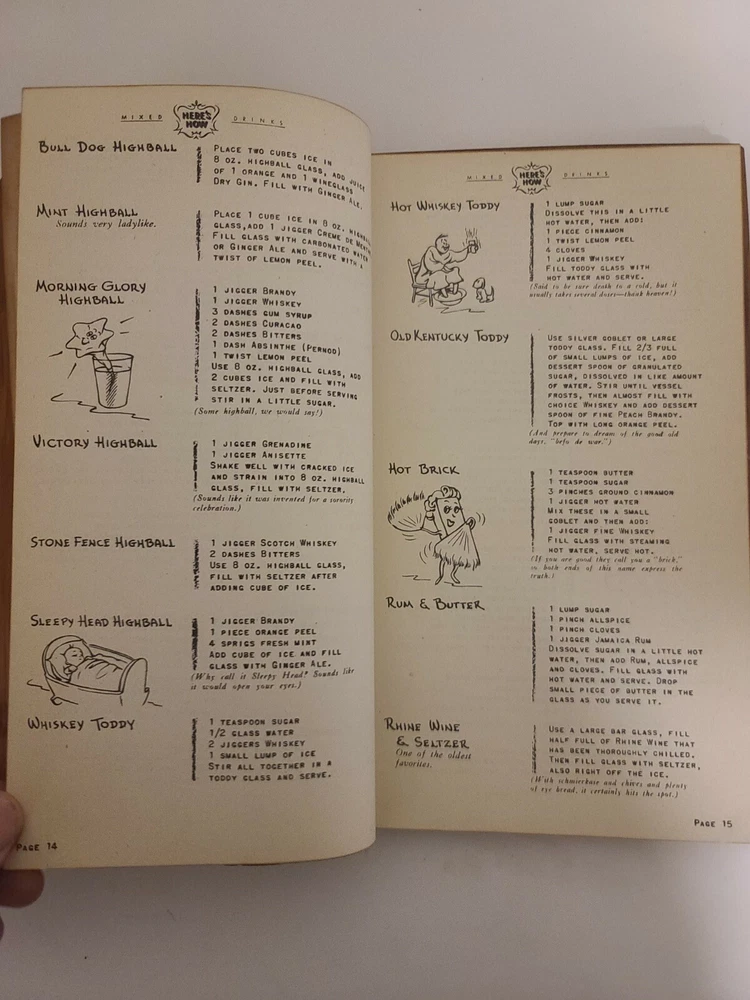 MIXED HERE'S HOW DRINKS
BULL DOG HIGHBALL
PLACE TWO CUBES ICE IN
8 OZ. HIGHBALL GLASS, ADD JUICE
OF 1 ORANGE AND 1 WINEGLASS
DRY GIN. FILL WITH GINGER ALE.
MINT HIGHBALL
Sounds very ladylike.
PLACE 1 CUBE ICE IN 8 OZ. HIGHBALL
GLASS, ADD 1 JIGGER CREME DE MENTHE
FILL GLASS WITH CARBONATED WATER
OR GINGER ALE AND SERVE WITH A
TWIST OF LEMON PEEL.
MORNING GLORY
HIGHBALL
1 JIGGER BRANDY
1 JIGGER WHISKEY
3 DASHES GUM SYRUP
2 DASHES CURACAO
2 DASHES BITTERS
1 DASH ABSINTHE (PERNOD)
1 TWIST LEMON PEEL
USE 8 OZ. HIGHBALL GLASS, ADD
2 CUBES ICE AND FILL WITH
SELTZER. JUST BEFORE SERVING
STIR IN A LITTLE SUGAR.
(Some highball, we would say!)
VICTORY HIGHBALL
1 JIGGER GRENADINE
1 JIGGER ANISETTE
SHAKE WELL WITH CRACKED ICE
AND STRAIN INTO 8 OZ. HIGHBALL
GLASS, FILL WITH SELTZER.
(Sounds like it was invented for a sorority
celebration.)
STONE FENCE HIGHBALL
1 JIGGER SCOTCH WHISKEY
2 DASHES BITTERS
USE 8 OZ. HIGHBALL GLASS,
FILL WITH SELTZER AFTER
ADDING CUBE OF ICE.
SLEEPY HEAD HIGHBALL
1 JIGGER BRANDY
1 PIECE ORANGE PEEL
4 SPRIGS FRESH MINT
ADD CUBE OF ICE AND FILL
GLASS WITH GINGER ALE.
(Why call it Sleepy Head? Sounds like
it would open your eyes.)
WHISKEY TODDY
1 TEASPOON SUGAR
1/2 GLASS WATER
2 JIGGERS WHISKEY
1 SMALL LUMP OF ICE
STIR ALL TOGETHER IN A
TODDY GLASS AND SERVE.
PAGE 14
MIXED HERE'S HOW DRINKS
HOT WHISKEY TODDY
1 LUMP SUGAR
DISSOLVE THIS IN A LITTLE
HOT WATER, THEN ADD:
1 PIECE CINNAMON
1 TWIST LEMON PEEL
4 CLOVES
1 JIGGER WHISKEY
FILL TODDY GLASS WITH
HOT WATER AND SERVE.
(Said to be sure death to a cold, but it
usually takes several doses—thank heaven!)
OLD KENTUCKY TODDY
USE SILVER GOBLET OR LARGE
TODDY GLASS. FILL 2/3 FULL
OF SMALL LUMPS OF ICE, ADD
DESSERT SPOON OF GRANULATED
SUGAR, DISSOLVED IN LIKE AMOUNT
OF WATER. STIR UNTIL VESSEL
FROSTS, THEN ALMOST FILL WITH
CHOICE WHISKEY AND ADD DESSERT
SPOON OF FINE PEACH BRANDY.
TOP WITH LONG ORANGE PEEL.
(And prepare to dream of the good old
days, "befo de war.")
HOT BRICK
1 TEASPOON BUTTER
1 TEASPOON SUGAR
3 PINCHES GROUND CINNAMON
1 JIGGER HOT WATER
MIX THESE IN A SMALL
GOBLET AND THEN ADD:
1 JIGGER FINE WHISKEY
FILL GLASS WITH STEAMING
HOT WATER, SERVE HOT.
(If you are good they call you a "brick,"
so both ends of this name express the
truth.)
RUM & BUTTER
1 LUMP SUGAR
1 PINCH ALLSPICE
1 PINCH CLOVES
1 JIGGER JAMAICA RUM
DISSOLVE SUGAR IN A LITTLE HOT
WATER, THEN ADD RUM, ALLSPICE
AND CLOVES. FILL GLASS WITH
HOT WATER AND SERVE. DROP
SMALL PIECE OF BUTTER IN THE
GLASS AS YOU SERVE IT.
RHINE WINE
& SELTZER
One of the oldest
favorites.
USE A LARGE BAR GLASS, FILL
HALF FULL OF RHINE WINE THAT
HAS BEEN THOROUGHLY CHILLED.
THEN FILL GLASS WITH SELTZER,
ALSO RIGHT OFF THE ICE.
(With schmierkase and chives and plenty
of rye bread, it certainly hits the spot.)
PAGE 15